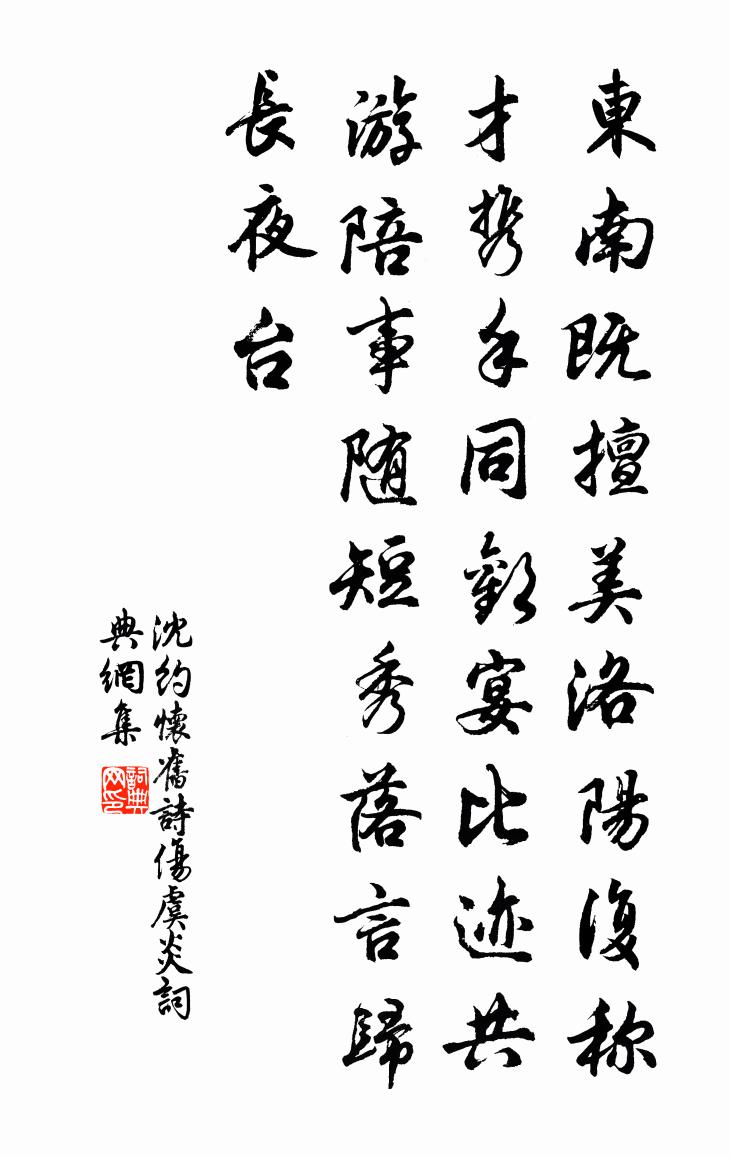 東南既擅美洛陽復称
才携手同歡宴比迹共
游陪事随短秀落言歸
長夜台
沈約懷舊詩傷虞炎詞
典網集
詞典
网印